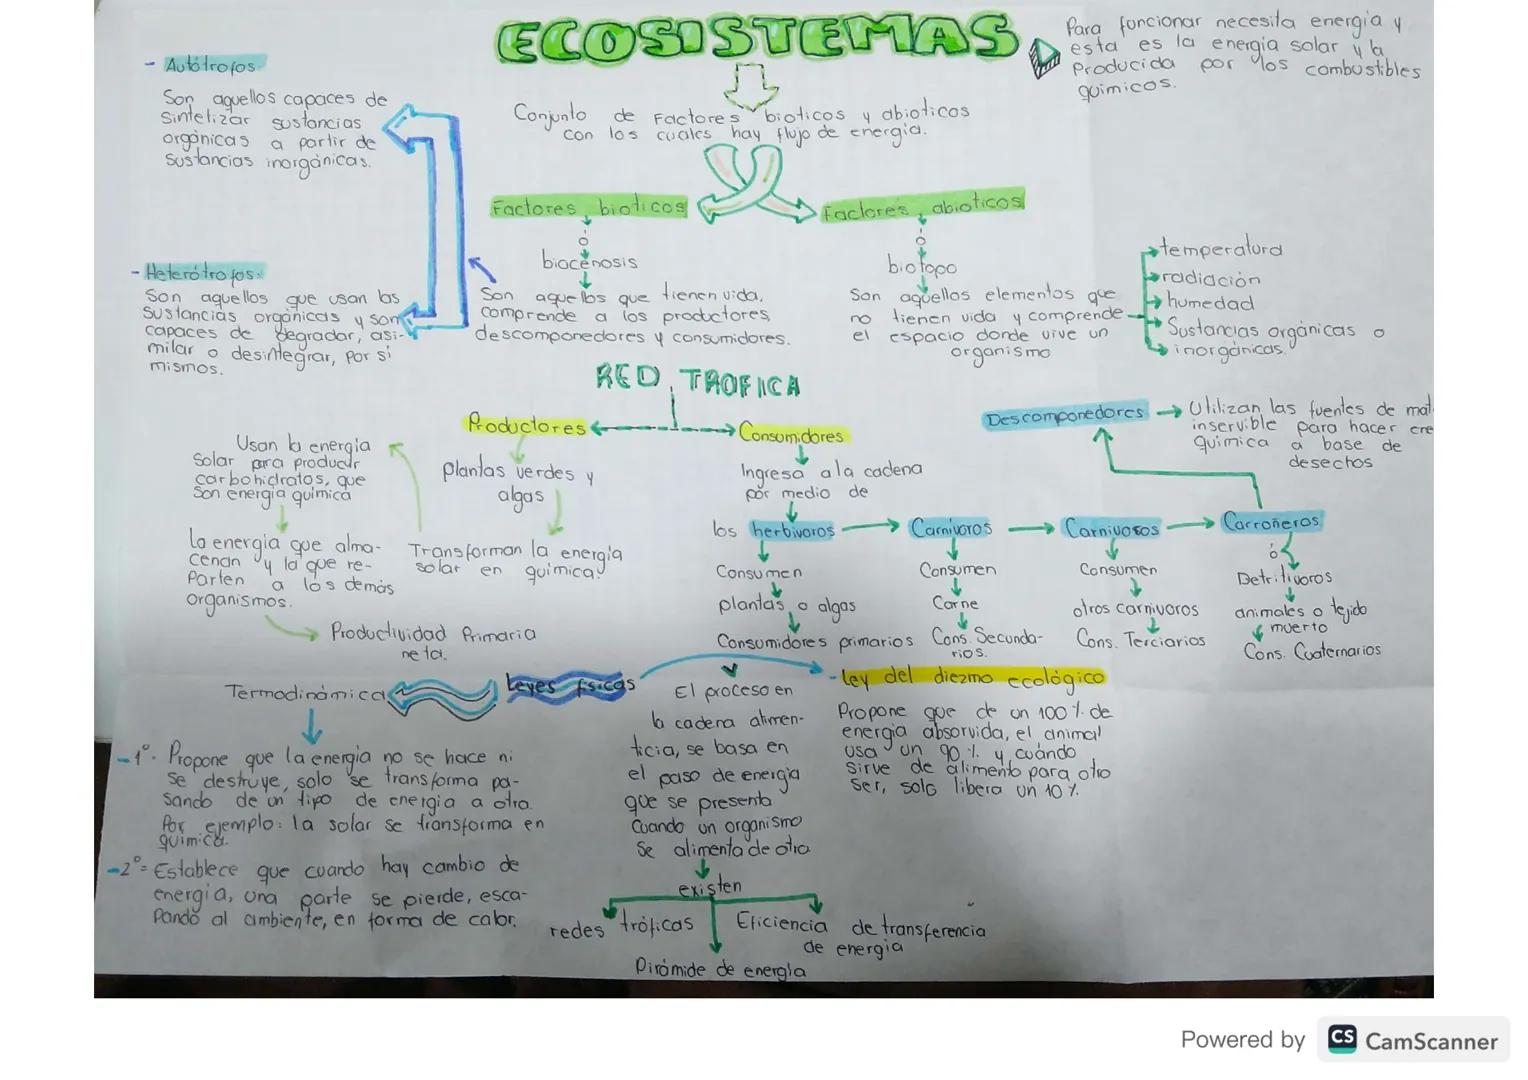 ECOSISTEMAS
Para funcionar necesita energía y
esta es la energía solar y la
Producida por los combustibles
químicos.
Conjunto de Factores bioticos y abioticos
con los cuales hay flujo de energía.
- Autótrofos:
Son aquellos capaces de
Sintetizar sustancias
orgánicas a partir de
Sustancias inorgánicas.
- Heterótrofos:
Son aquellos que usan las
sustancias orgánicas y son
capaces de degradar, asi-
milar o desintegrar, por sí
mismos.
Factores bioticos
ó
biocenosis
Son aquellos que tienen vida,
comprende a los productores,
descomponedores y consumidores.
Factores abioticos
ó
biotopo
Son aquellos elementos que
no tienen vida y comprende
el espacio donde vive un
organismo
temperatura
radiación
humedad
Sustancias orgánicas o
inorgánicas.
RED TROFICA
Productores
plantas verdes y
algas
Transforman la energía
solar en química.
Usan la energía
Solar para producir
carbohidratos, que
Son energía química
La energía que alma-
cenan y la que re-
Parten a los demás
organismos.
Productividad Primaria
neta.
Consumidores
Ingresa a la cadena
por medio de
los herbívoros
Consumen
plantas o algas
Consumidores primarios
Carnívoros
Consumen
Carne
Cons. Secunda-
rios.
Carnivosos
Consumen
otros carnivoros
Cons. Terciarios
Carroñeros
ó
Detritivoros
animales o tejido
muerto
Cons. Cuaternarios
Descomponedores
Utilizan las fuentes de mat
inservible para hacer ene
química a base de
desechos
Leyes físicas
Termodinámica
-1º- Propone que la energía no se hace ni
se destruye, solo se transforma pa-
sando de un tipo de energía a otra.
Por ejemplo: la solar se transforma en
química.
-2º= Establece que cuando hay cambio de
energía, una parte se pierde, esca-
pando al ambiente, en forma de calor.
El proceso en
la cadena alimen-
ticia, se basa en
el paso de energía
que se presenta
Cuando un organismo
Se alimenta de otro
existen
redes tróficas
Pirámide de energía
Eficiencia de transferencia
de energía
-Ley del diezmo ecológico
Propone que de un 100% de
energía absorvida, el animal
usa un 90% y cuando
Sirve de alimento para otro
Ser, solo libera un 10%
Powered by CS CamScanner